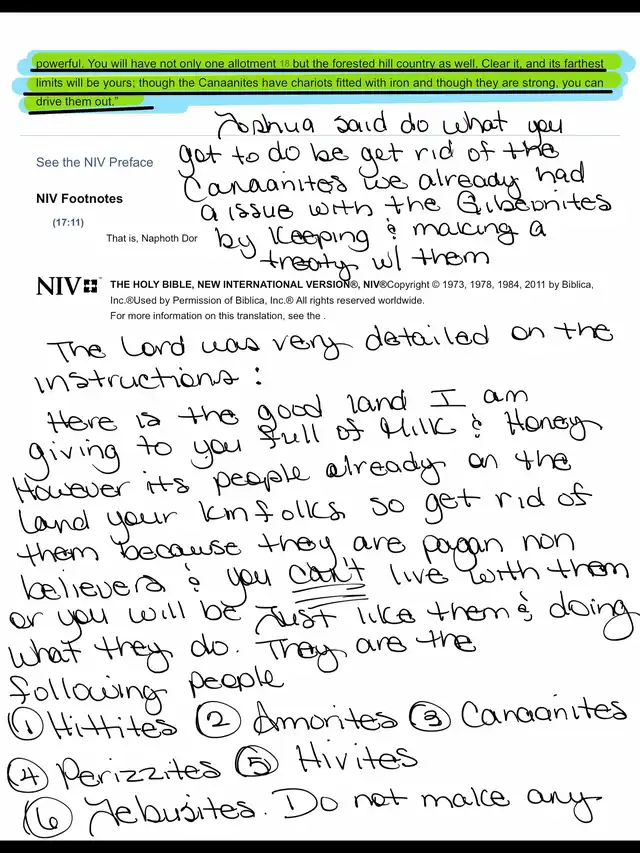 powerful. You will have not only one allotment 18 but the forested hill country as well. Clear it, and its farthest
limits will be yours; though the Canaanites have chariots fitted with iron and though they are strong, you can
drive them out."
Joshua said do what you
got to do be get rid of the
Canaanites we already had
a issue with the Gibeonites
by keeping & making a
treaty w/ them
See the NIV Preface
NIV Footnotes
(17:11)
That is, Naphoth Dor
NIV THE HOLY BIBLE, NEW INTERNATIONAL VERSION®, NIV®Copyright © 1973, 1978, 1984, 2011 by Biblica,
Inc.®Used by Permission of Biblica, Inc.® All rights reserved worldwide.
For more information on this translation, see the .
The Lord was very detailed on the
instructions:
Here is the good land I am
giving to you full of Milk & Honey
However its people already on the
land your kinfolks so get rid of
them because they are pagan non
believers & you can't live with them
or you will be Just like them & doing
what they do. They are the
following people
① Hittites ② Amorites ③ Canaanites
④ Perizzites ⑤ Hivites
⑥ Jebusites. Do not make any